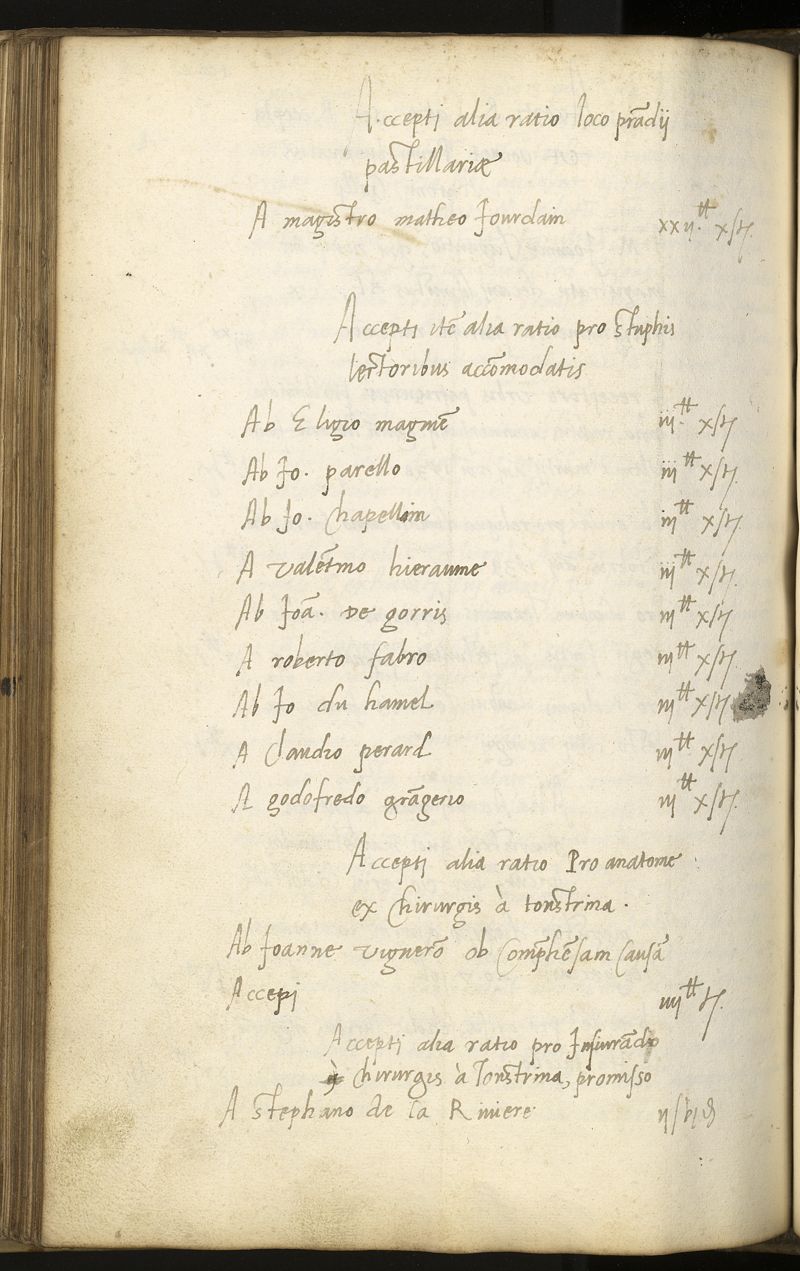 Accepti alia ratio loco prãdij
pastillariæ
A magistro matheo Jourdain xxij.tt xſ tz.
Accepti itẽ alia ratio pro stuphis
lectoribus accõmodatis
Ab Eligio magnẽ iij.tt xſ tz
Ab Jo. parello iij tt xſ tz.
Ab Jo. Chapellain iij tt xſ tz
A valẽtino hieraume iij tt xſ tz.
Ab Joã. De gorris iij tt xſ tz
A roberto fabro iij tt xſ tz.
Ab Jo du hamel iij tt xſ tz
A Claudio perard iij tt xſ tz
A godofredo grãgerio iij tt xſ tz.
Accepti alia ratio Pro anatome
ex Chirurgis à tonstrina.
Ab Joanne vignerõ ob Comp̃hẽſam Cauſã
Accepi iiij tt tz.
Accepti alia ratio pro Jnſiurãdo
Chirurgis à Tonstrina, promiſſo
A stephano de la Riviere